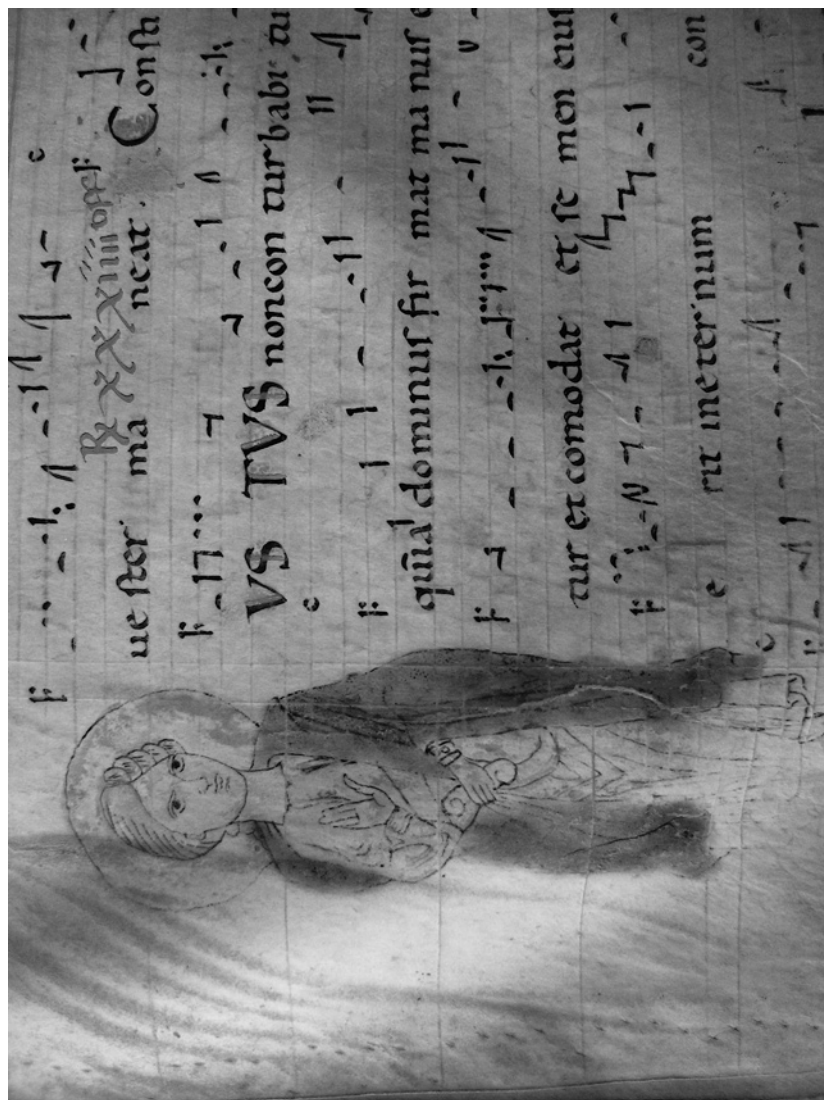 XXXIIII
ue ſter ma neat. Conſta
VS TVS noncon turbabi tu
quia dominuſ fir mat ma nuſ e
tur et comodat et ſe men eiuſ
rit ineternum con